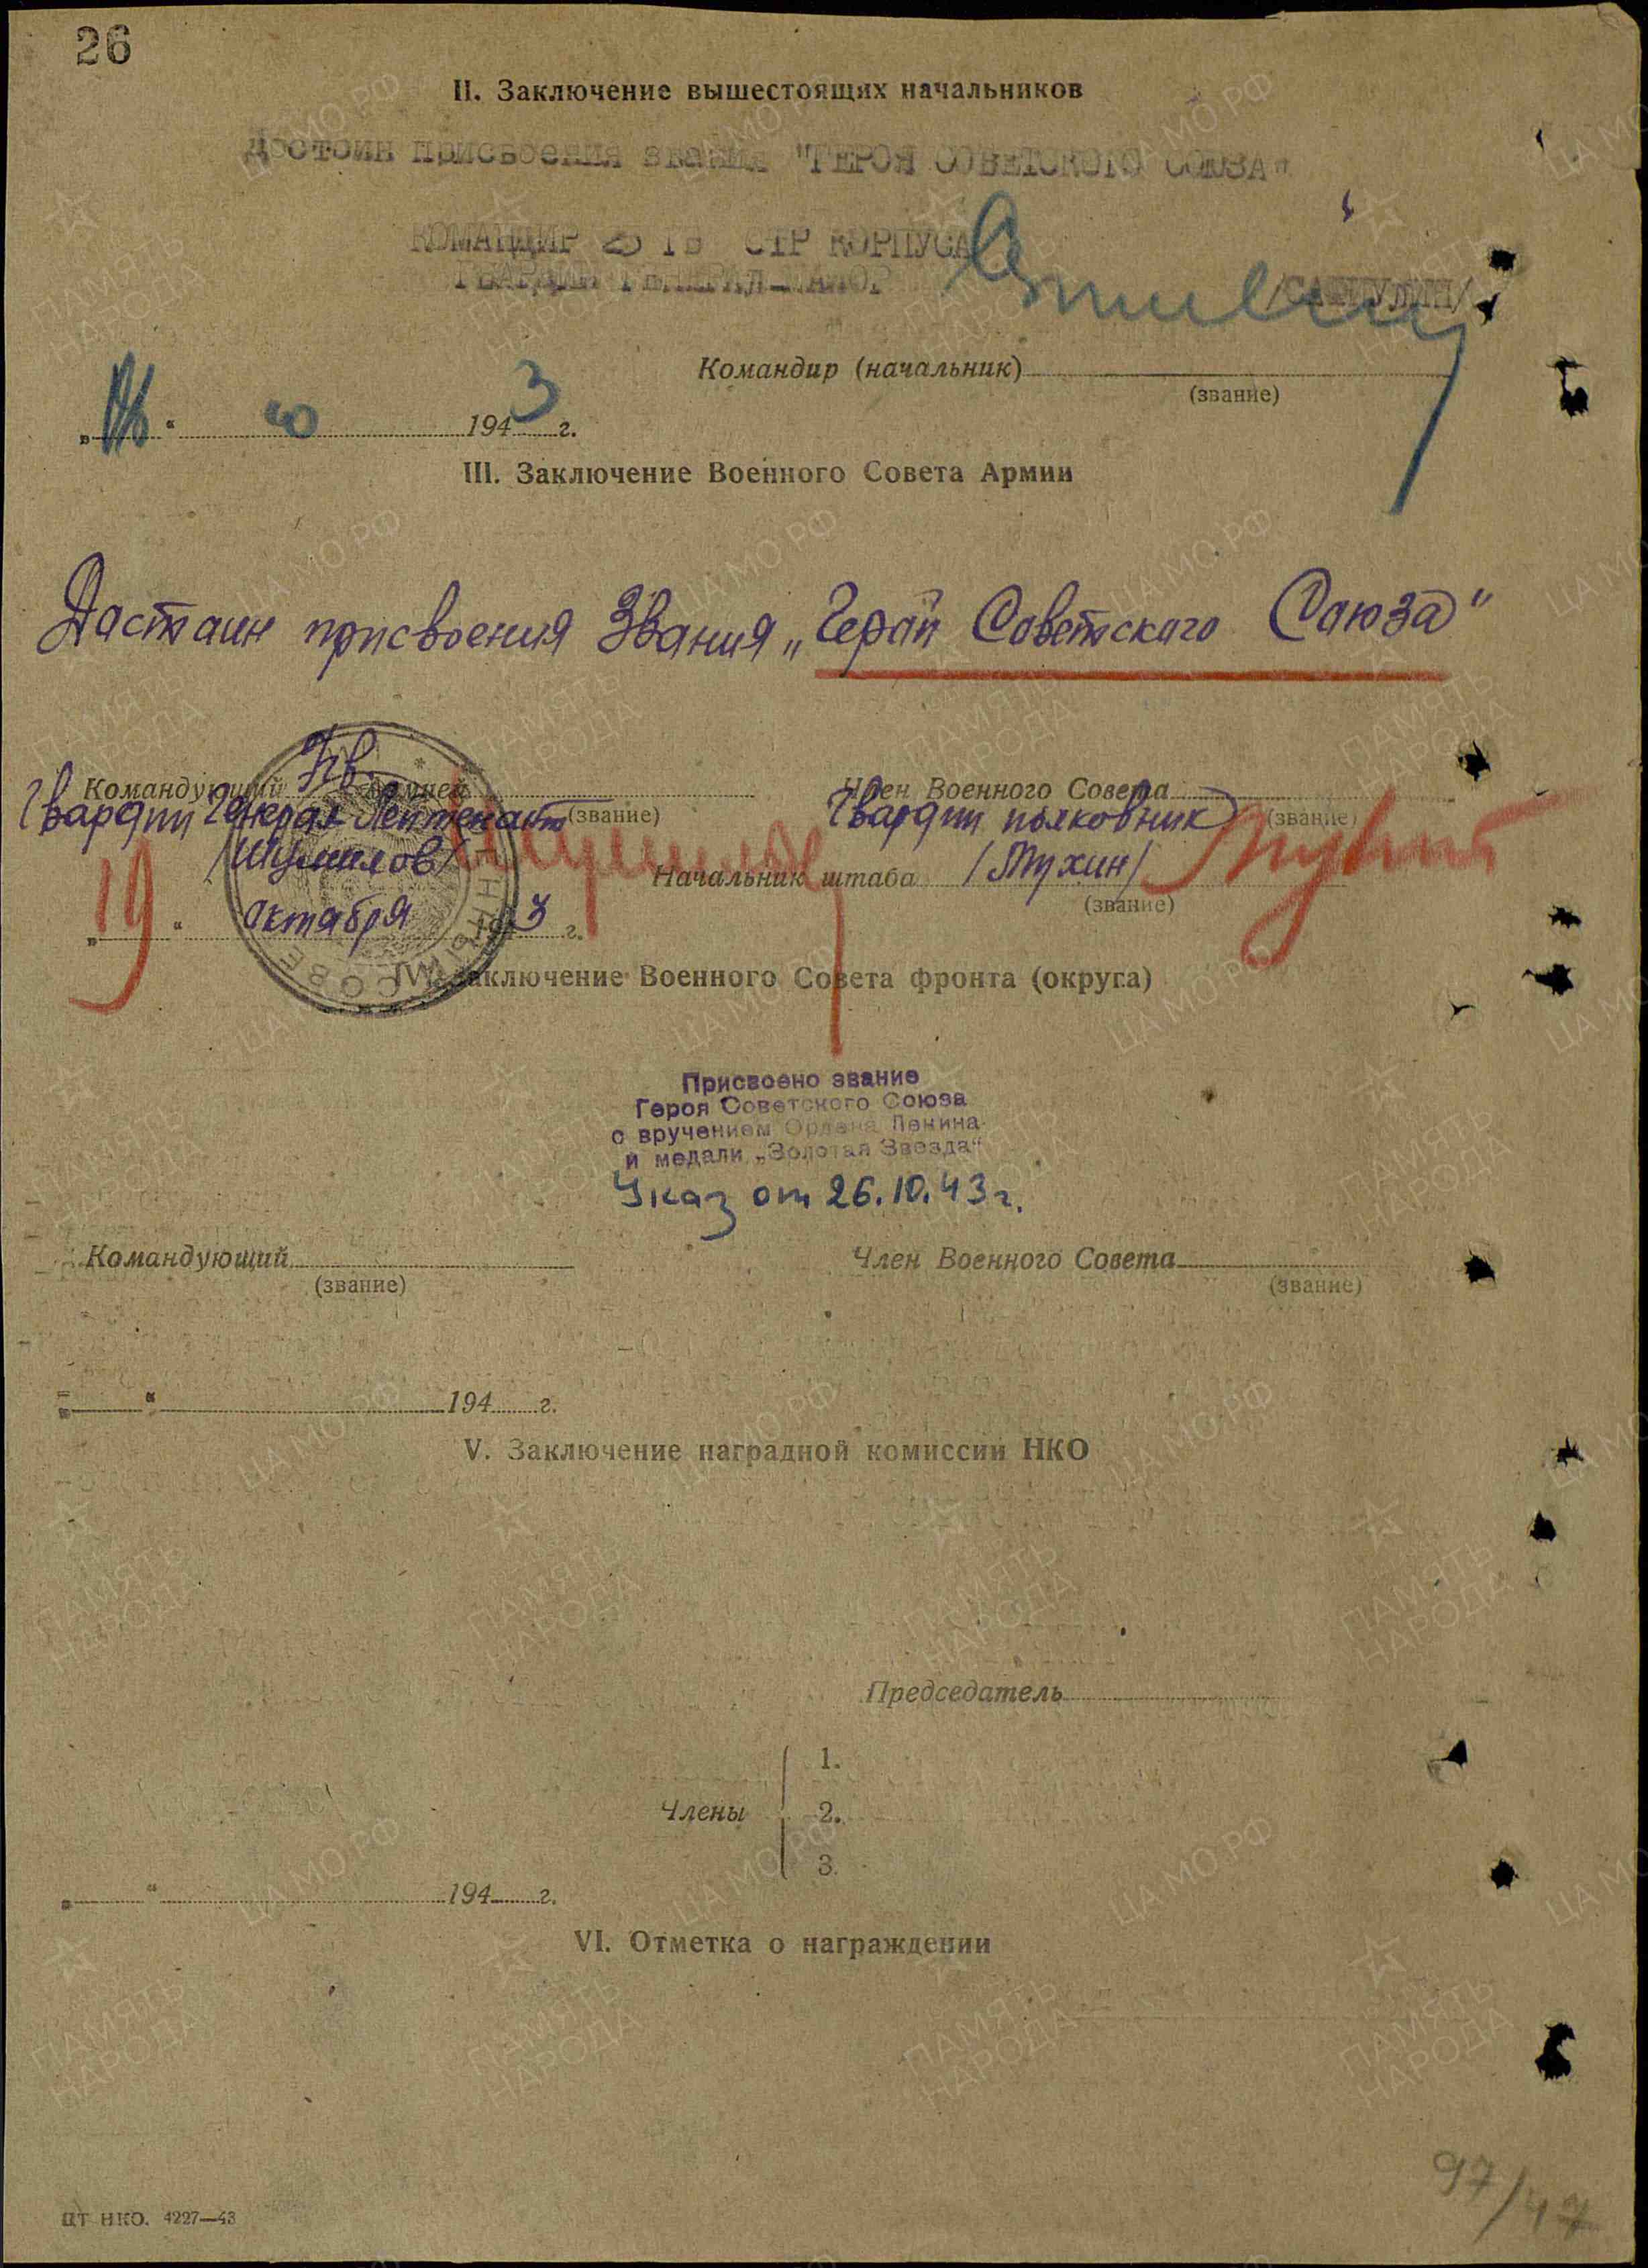 26
II. Заключение вышестоящих начальников
Достоин присвоения звания "ГЕРОЯ СОВЕТСКОГО СОЮЗА"
КОМАНДИР 25 ГВ СТР КОРПУСА
ГВАРДИИ ГЕНЕРАЛ-МАЙОР /САФИУЛИН/
Командир (начальник)
(звание)
" " 10 1943 г.
III. Заключение Военного Совета Армии
Дастаин присвоения Звания „Герой Советского Союза"
Командующий 7 гв. Армией
Член Военного Совета
Гвардии Генерал Лейтенант (звание)
Гвардии полковник (звание)
/Шумилов/
Начальник штаба /Мухин/
(звание)
„19" Октября 1943 г.
IV. Заключение Военного Совета фронта (округа)
Присвоено звание
Героя Советского Союза
с вручением Ордена Ленина
и медали „Золотая Звезда"
Указ от 26.10.43 г.
Командующий
Член Военного Совета
(звание)
(звание)
„ " 194 г.
V. Заключение наградной комиссии НКО
Председатель
1.
Члены 2.
3.
„ " 194 г.
VI. Отметка о награждении
97/47
ЦТ НКО. 4227—43
ПАМЯТЬ НАРОДА
ЦА МО РФ